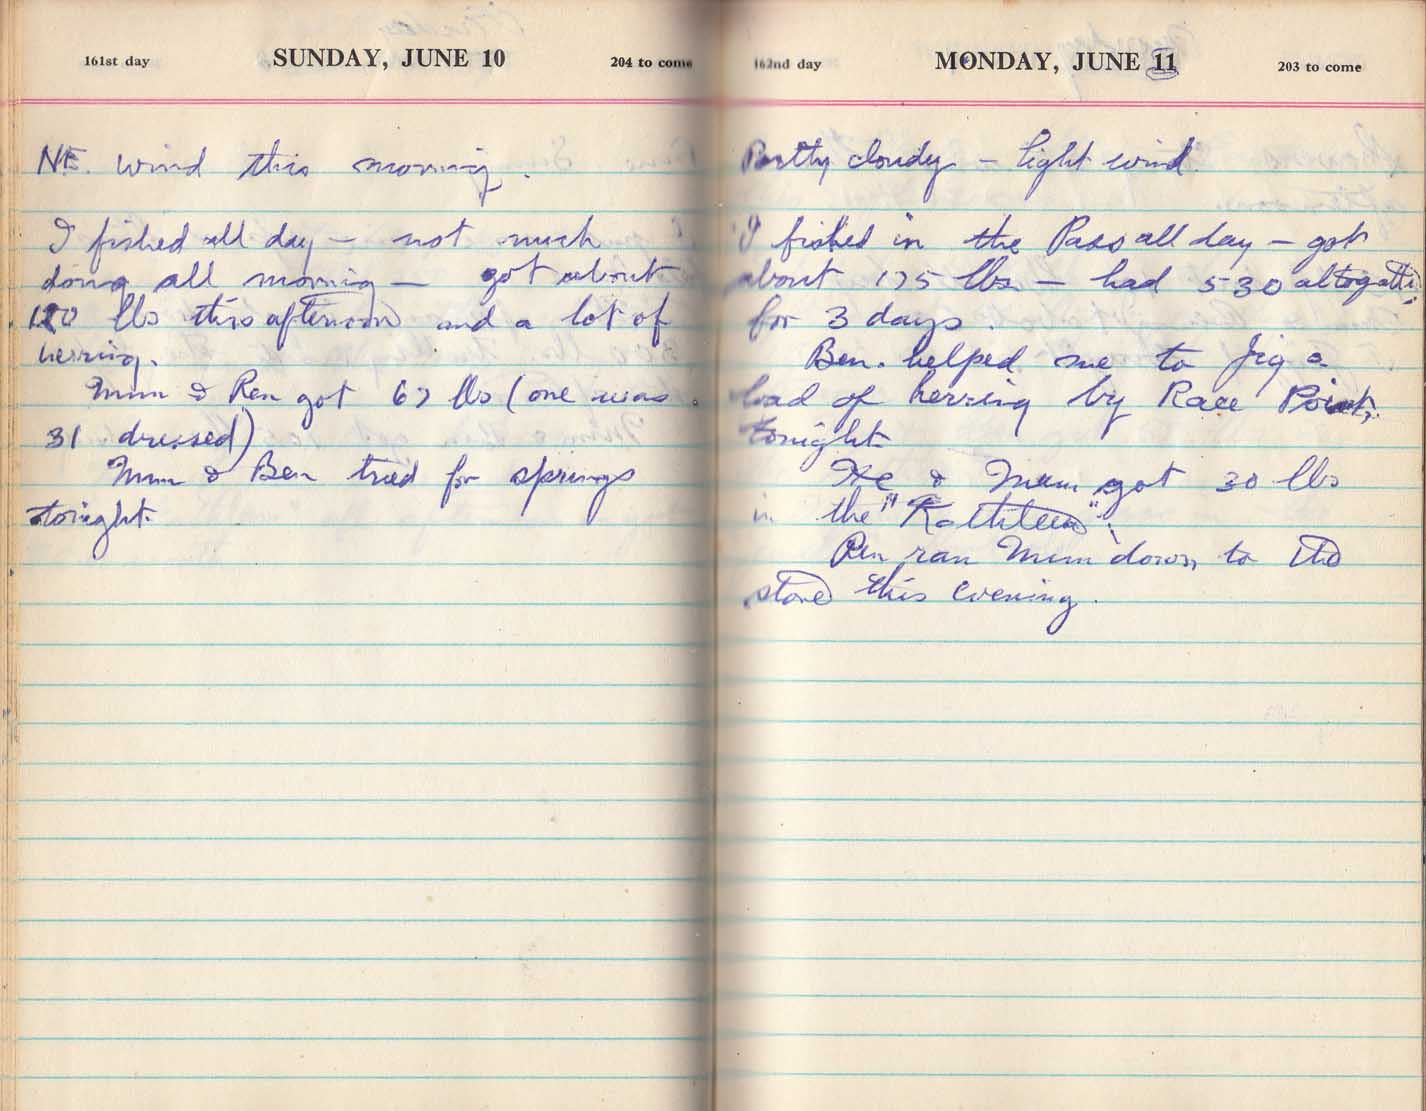 161st day SUNDAY, JUNE 10 204 to come
NE. wind this morning.
I fished all day — not much
doing all morning — got about
120 lbs this afternoon and a lot of
herring.
Mum & Ren got 67 lbs (one was
31 dressed)
Mum & Ben tried for springs
tonight.
162nd day MONDAY, JUNE 11 203 to come
Partly cloudy — light wind.
I fished in the Pass all day — got
about 175 lbs — had 530 altogether
for 3 days.
Ben helped me to jig a
load of herring by Race Point,
tonight.
He & Mum got 30 lbs
in the "Kathleen".
Ren ran Mum down to the
store this evening.